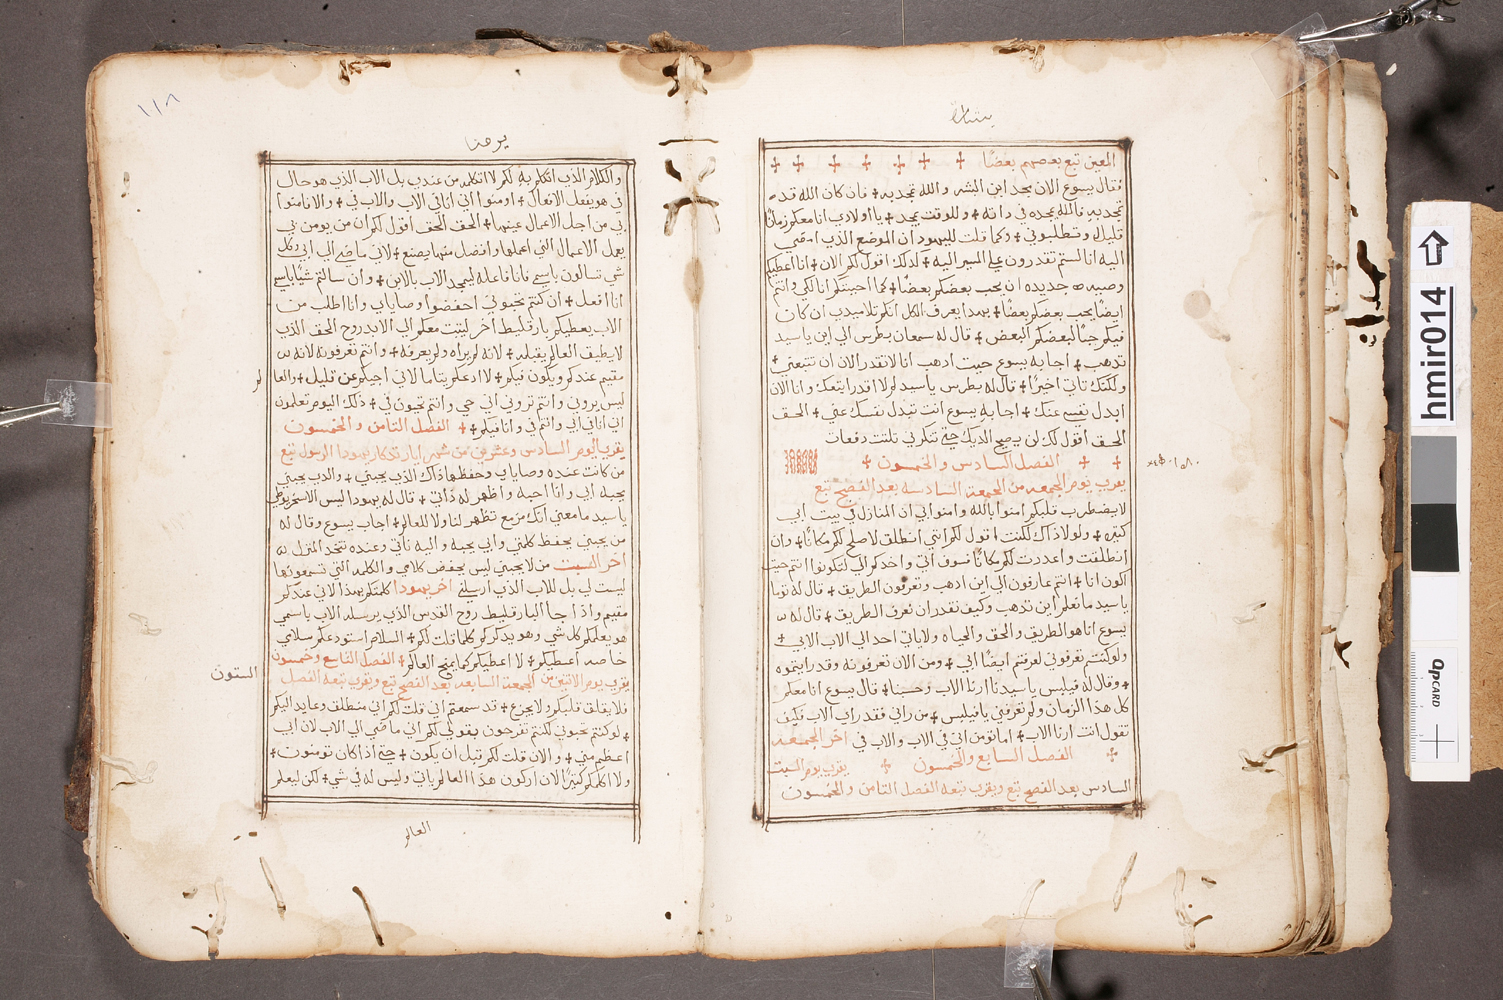 بشارة
المعين تبع بعضهم بعضًا
فقال يسوع الان مجد ابن البشر والله تمجد به + فان كان الله قد
تمجد به فالله يمجده في ذاته + وللوقت يمجده + يا اولادي انا معكم زمانًا
قليل وتطلبوني + وكما قلت لليهود ان الموضع الذي امضي
اليه انا لستم تقدرون على المسير اليه + كذلك اقول لكم الان + انا اعطيكم
وصيه جديده ان يحب بعضكم بعضًا + كما احببتكم انا لكي وانتم
ايضًا يحب بعضكم بعضًا + بهذا يعرف الكل انكم تلاميدي ان كان
فيكم حبًا لبعضكم البعض + قال له سمعان بطرس الي اين يا سيد
تدهب + اجابه يسوع حيت ادهب انا لا تقدر الان ان تتبعني +
ولكنك تاتي اخيرًا + قال له بطرس يا سيد لم لا اقدر اتبعك وانا الان
ابدل نفسي عنك + اجابه يسوع انت تبدل نفسك عني + الحق
الحق اقول لك لن يصيح الديك حتي تنكرني تلتت دفعات
الفصل السادس والخمسون
يقرب يوم الجمعه من الجمعة السادسه بعد الفصح تبع
لا يضطرب قلبكم امنوا بالله وامنوا بي ان المنازل في بيت ابي
كتيره + ولولا ذاك لكنت اقول لكم انني انطلق لاصلح لكم مكانًا + وان
انطلقت واعددت لكم مكانًا سوف اتي واخدكم الي لتكونوا انتم حيت
اكون انا + انتم عارفون الي اين ادهب وتعرفون الطريق + قال له توما
يا سيد ما نعلم اين تدهب وكيف نقدر ان نعرف الطريق + قال له
يسوع انا هو الطريق والحق والحياه ولا ياتي احد الي الاب الا بي +
ولو كنتم تعرفوني لعرفتم ايضًا ابي + ومن الان تعرفونه وقد رايتموه
+ وقال له فيلبس يا سيد ارنا الاب وحسبنا + قال يسوع انا معكم
كل هذا الزمان ولم تعرفني يا فيلبس + من راني فقد راي الاب فكيف
تقول انت ارنا الاب + اما تومن اني في الاب والاب في اخر الجمعه
الفصل السابع والخمسون + يقرب يوم السبت
السادس بعد الفصح تبع ويقرب تبعه الفصل الثامن والخمسون
١١٨
يوحنا
والكلام الذي اتكلم به لكم لا اتكلمه من عندي بل الاب الذي هو حال
في هو يفعل الافعال + اومنوا اني انا في الاب والاب في + والا فامنوا
بي من اجل الاعمال عينها + الحق الحق اقول لكم ان من يومن بي
يعمل الاعمال التي اعملها وافضل منها يصنع + لاني ماضي الي ابي وكل
شي تسالون باسمي فانا فاعله ليمجد الاب بالابن + وان سالتم شيًا باسمي
انا افعل + ان كنتم تحبوني احفضوا وصاياي وانا اطلب من
الاب يعطيكم بارقليط اخر ليتبت معكم الي الابد روح الحق الذي
لا يطيق العالم يقبله + لانه لم يراه ولم يعرفه + وانتم تعرفونه لانه
مقيم عندكم ويكون فيكم + لا ادعكم يتاما لاني اجيكم عن قليل + والعا
لم
ليس يروني وانتم تروني اني حي وانتم تحيون بي + ذلك اليوم تعلمون
اني انا في ابي وانتم في وانا فيكم + الفصل الثامن والخمسون
يقرب اليوم السادس وعشرين من شهر ايار تذكار يهودا الرسول تبع
من كانت عنده وصاياي وحفظها ذاك الذي يحبني + والدي يحبني
يحبه ابي وانا احبه واظهر له ذاتي + قال له يهودا ليس الاسخريوطي
يا سيد ما معني انك مزمع تظهر لنا ولا للعالم + اجاب يسوع وقال له
من يحبني يحفظ كلمتي وابي يحبه واليه ناتي وعنده نتخد المنزل
اخر السبت من لا يحبني ليس يحفض كلامي والكلمه التي تسمعونها
ليست لي بل للاب الذي ارسلني اخر يهودا كلمتكم بهذا لاني عندكم
مقيم واذا جا البارقليط روح القدس الذي يرسله الاب باسمي
هو يعلمكم كل شي وهو يدكركم كلما قلت لكم + السلام استودعكم سلامي
خاصه اعطيكم + لا اعطيكم كما يمنح العالم + الفصل التاسع وخمسون
يقرب يوم الاتنين من الجمعة السابعه بعد الفصح تبع ويقرب تبعه الفصل
الستون
فلا يقلق قلبكم ولا يجزع + قد سمعتم اني قلت لكم اني منطلق وعايد اليكم
+ لو كنتم تحبوني لكنتم تفرحون بقولي لكم اني ماضي الي الاب لان ابي
اعظم مني + والان قلت لكم قبل ان يكون + حتي اذا كان تومنون +
ولا اكلمكم كتيرًا لان اركون هذا العالم ياتي وليس له في شي + لكن ليعلم
العالم
hmir014
QPCARD